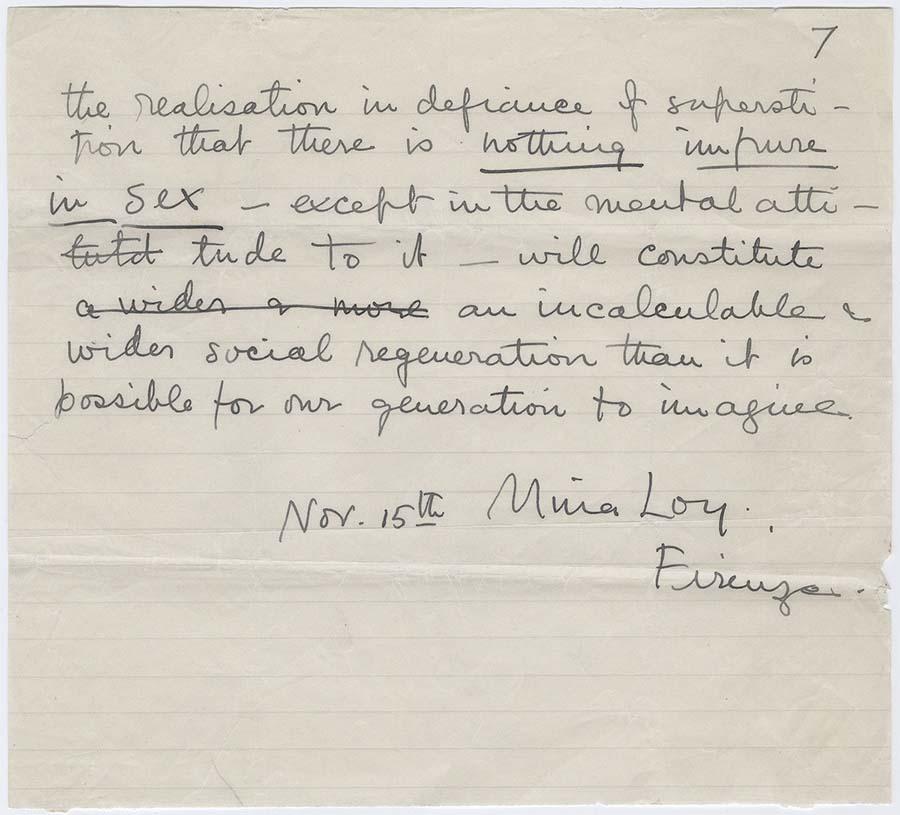 7
the realisation in defiance of supersti –
tion that there is nothing impure
in sex – except in the mental atti –
tutd tude to it – will constitute
a wider & more an incalculable &
wider social regeneration than it is
possible for our generation to imagine.
Nov. 15th Mina Loy.
Firenze.